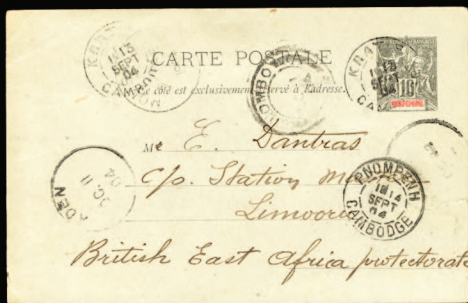 CARTE POSTALE
Ce côté est exclusivement réservé à l'adresse.
KRATIE
1E 13
SEPT
04
CAMBODGE
KRATIE
1E 13
SEPT
04
10
INDO-CHINE
Me E. Dantras
C/o. Station
Limooria
British East Africa protectorate
PNOMPENH
1E 14
SEPT
04
CAMBODGE
DEN
OC 11
04